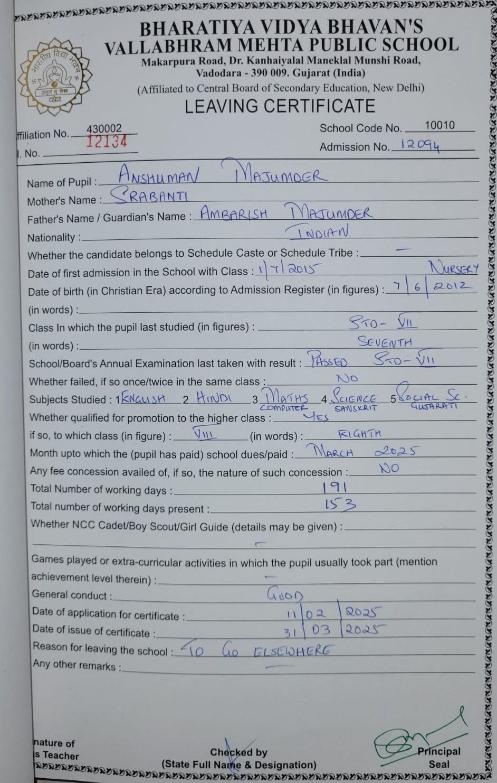 BHARATIYA VIDYA BHAVAN'S
VALLABHRAM MEHTA PUBLIC SCHOOL
Makarpura Road, Dr. Kanhaiyalal Maneklal Munshi Road,
Vadodara - 390 009. Gujarat (India)
(Affiliated to Central Board of Secondary Education, New Delhi)
LEAVING CERTIFICATE
ffiliation No. 430002 School Code No. 10010
l. No. 12134 Admission No. 12094
Name of Pupil : ANSHUMAN MAJUMDER
Mother's Name : SRABANTI
Father's Name / Guardian's Name : AMBARISH MAJUMDER
Nationality : INDIAN
Whether the candidate belongs to Schedule Caste or Schedule Tribe : —
Date of first admission in the School with Class : 1/7/2015 NURSERY
Date of birth (in Christian Era) according to Admission Register (in figures) : 7 | 6 | 2012
(in words) :
Class In which the pupil last studied (in figures) : STD- VII
(in words) : SEVENTH
School/Board's Annual Examination last taken with result : PASSED STD- VII
Whether failed, if so once/twice in the same class : NO
Subjects Studied : 1 ENGLISH 2 HINDI 3 MATHS 4 SCIENCE 5 SOCIAL SC.
COMPUTER SANSKRIT GUJARATI
Whether qualified for promotion to the higher class : YES
if so, to which class (in figure) : VIII (in words) : EIGHTH
Month upto which the (pupil has paid) school dues/paid : MARCH 2025
Any fee concession availed of, if so, the nature of such concession : NO
Total Number of working days : 191
Total number of working days present : 153
Whether NCC Cadet/Boy Scout/Girl Guide (details may be given) :
—
Games played or extra-curricular activities in which the pupil usually took part (mention
achievement level therein) : —
General conduct : GOOD
Date of application for certificate : 11 | 02 | 2025
Date of issue of certificate : 31 | 03 | 2025
Reason for leaving the school : TO GO ELSEWHERE
Any other remarks : —
nature of
s Teacher
Checked by
(State Full Name & Designation)
Principal
Seal